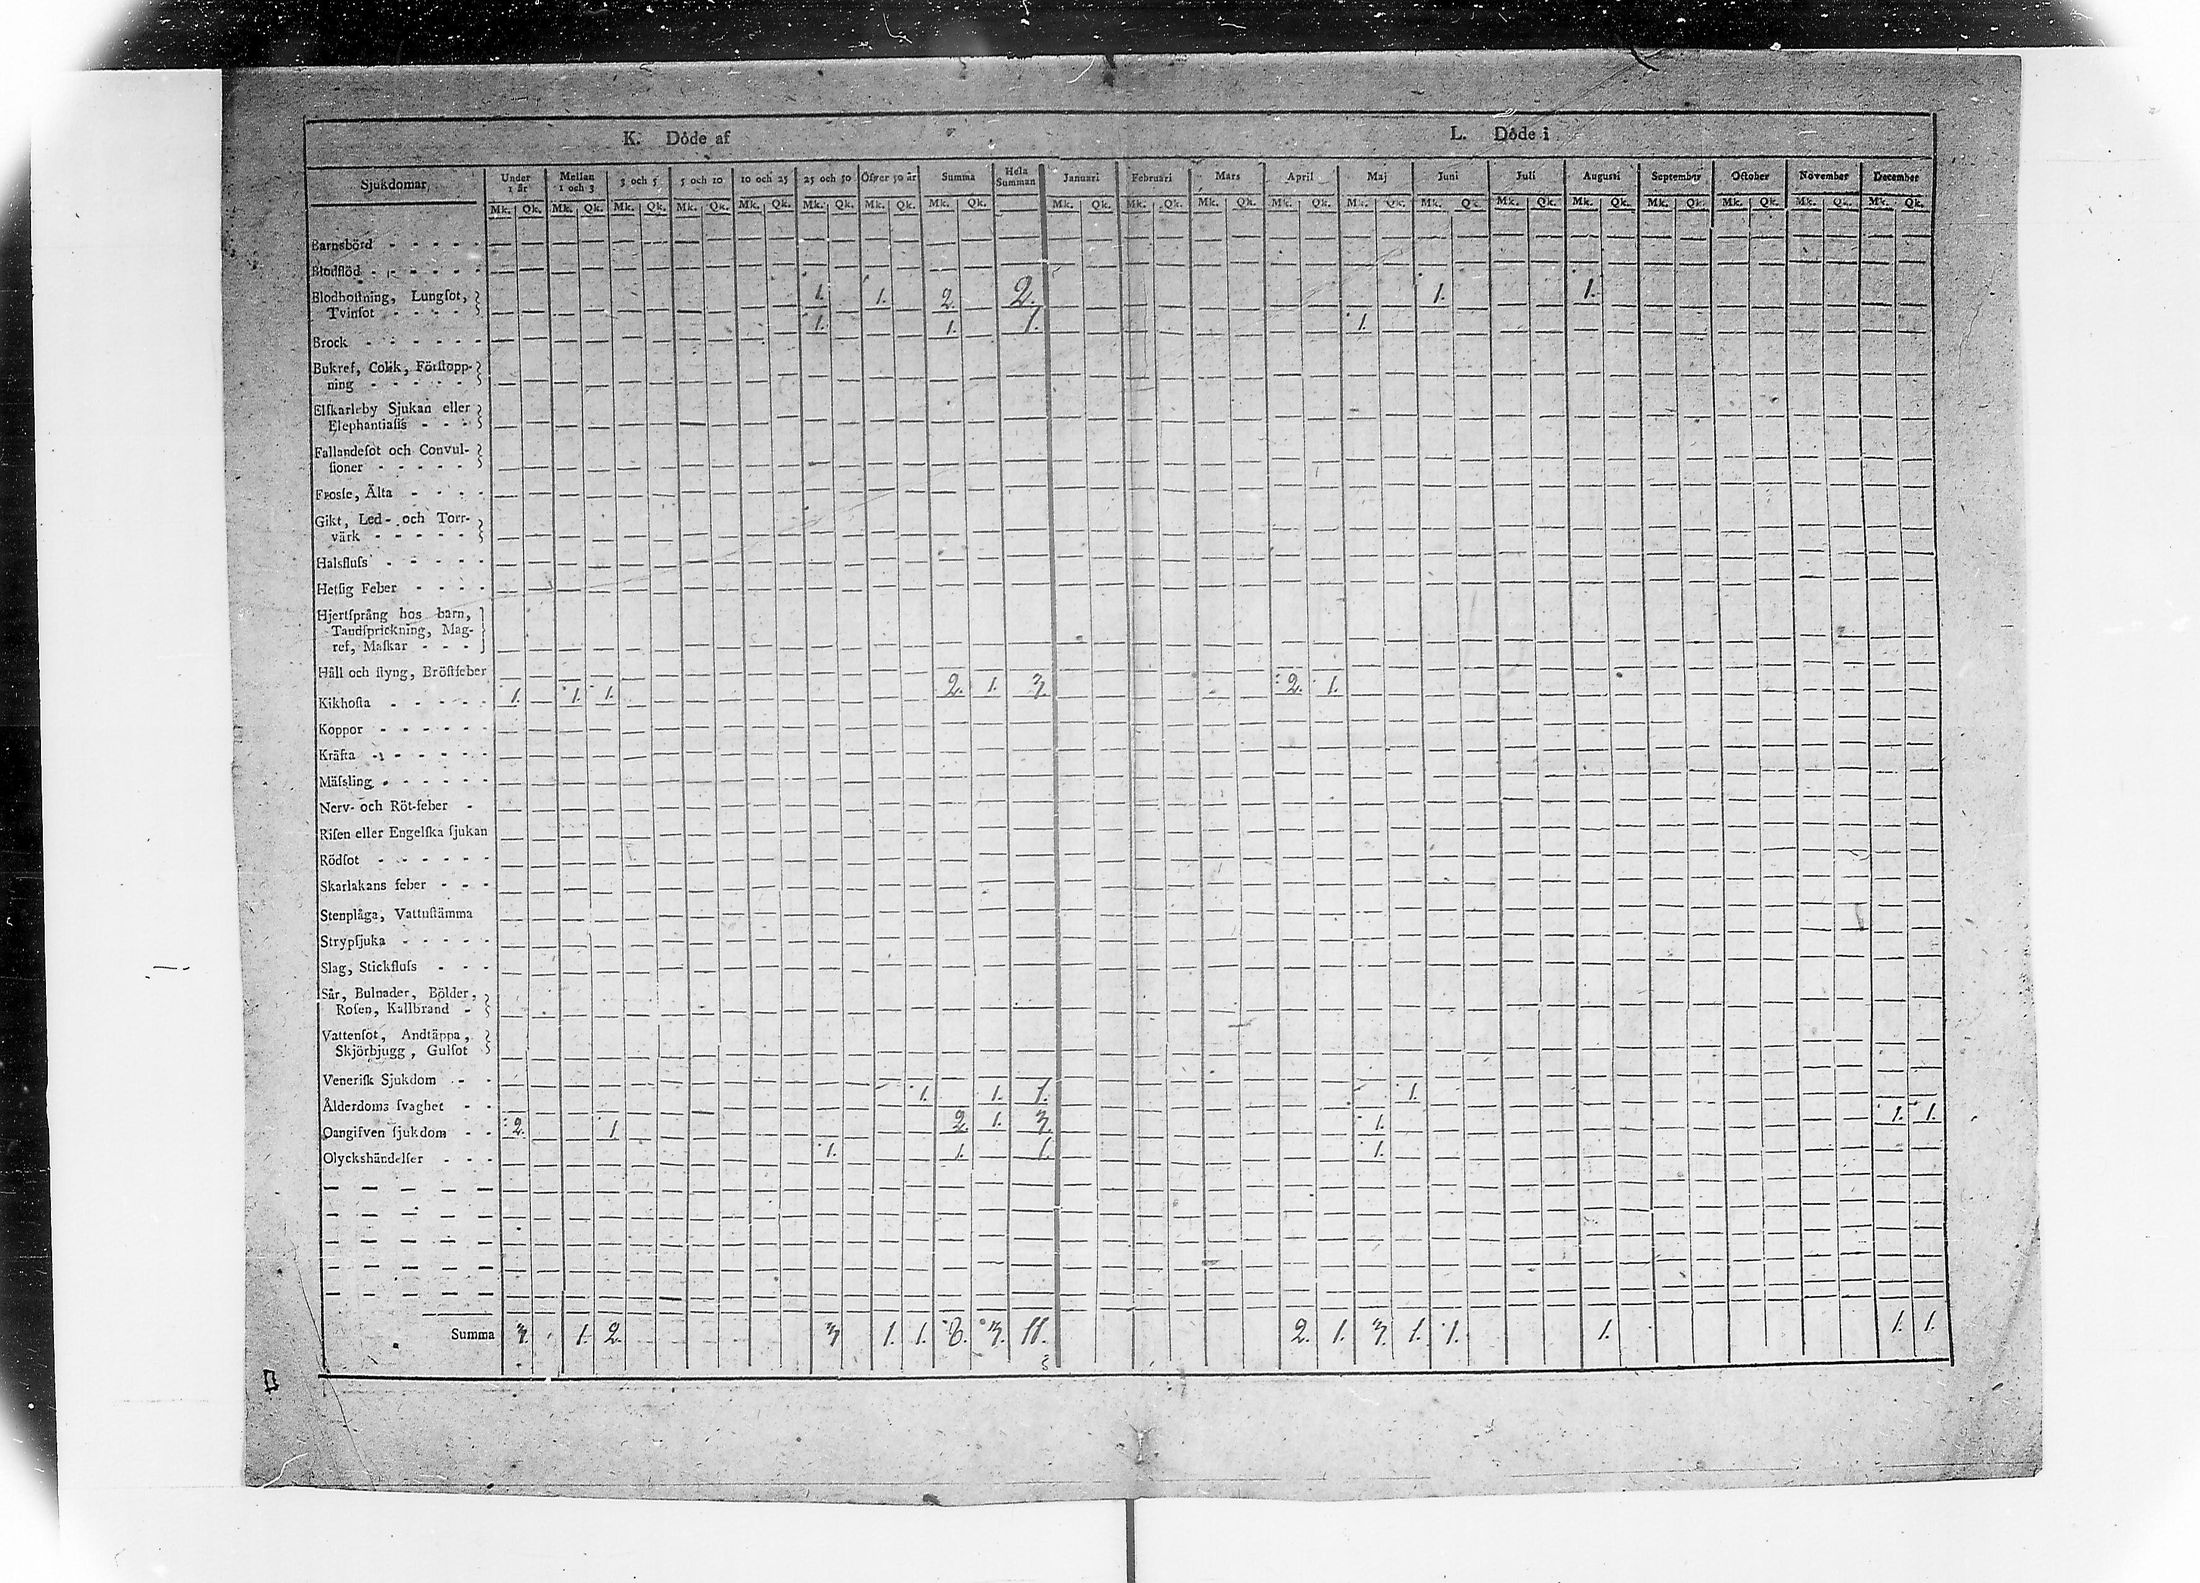 K. Döde af L. Döde i
Sjukdomar. Under 1 år Mellan 1 och 3 3 och 5 5 och 10 10 och 25 25 och 50 Öfver 50 år Summa Hela Summan Januari Februari Mars April Maj Juni Juli Augusti September October November December
Mk. Qk. Mk. Qk. Mk. Qk. Mk. Qk. Mk. Qk. Mk. Qk. Mk. Qk. Mk. Qk. Mk. Qk. Mk. Qk. Mk. Qk. Mk. Qk. Mk. Qk. Mk. Qk. Mk. Qk. Mk. Qk. Mk. Qk. Mk. Qk. Mk. Qk. Mk. Qk.
Barnsbörd - - - - -
Blodflöd - - - - - -
Blodhoſtning, Lungſot, 1. 1. 2. 2. 1. 1.
Tvinſot - - - -
Brock - - - - - - 1. 1. 1. 1.
Bukref, Colik, Förſtopp-
ning - - - - -
Elſkarleby Sjukan eller
Elephantiaſis - - -
Fallandeſot och Convul-
ſioner - - - - -
Froſſe, Älta - - - -
Gikt, Led- och Torr-
värk - - - - -
Halsfluſs - - - - -
Hetſig Feber - - - -
Hjertſprång hos barn,
Tandſprickning, Mag-
ref, Maſkar - - -
Håll och ſtyng, Bröſtfeber
Kikhoſta - - - - - 1. 1. 1. 2. 1. 3. 2. 1.
Koppor - - - - - -
Kräfta - - - - - -
Mäſsling - - - - - -
Nerv- och Röt-feber -
Riſen eller Engelſka ſjukan
Rödſot - - - - - -
Skarlakans feber - - -
Stenplåga, Vattuſtämma
Strypſjuka - - - - -
Slag, Stickfluſs - - -
Sår, Bulnader, Bölder,
Roſen, Kallbrand -
Vattenſot, Andtäppa,
Skjörbjugg, Gulſot
Veneriſk Sjukdom - -
Ålderdoms ſvaghet - - 1. 1. 1. 1.
Oangifven ſjukdom - - 2. 1. 2. 1. 3. 1. 1. 1.
Olyckshändelſer - - - 1. 1. 1. 1.
Summa 3. 1. 2. 3. 1. 1. 8. 3. 11. 2. 1. 3. 1. 1. 1. 1. 1.